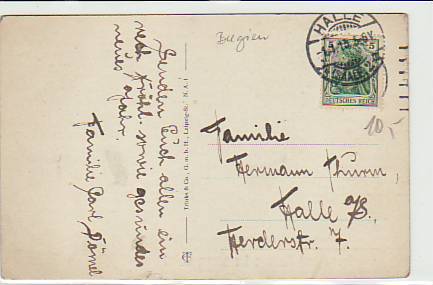 Senden Euch allen ein
recht fröhl. sowie gesundes
neues Jahr.
Familie Carl
Trinks & Co., G. m. b. H., Leipzig-St. N. A. I
Belgien
HALLE
5
DEUTSCHES REICH
10,-
Familie
Hermann Thurm,
Halle a/S.
Herderstr. 7.